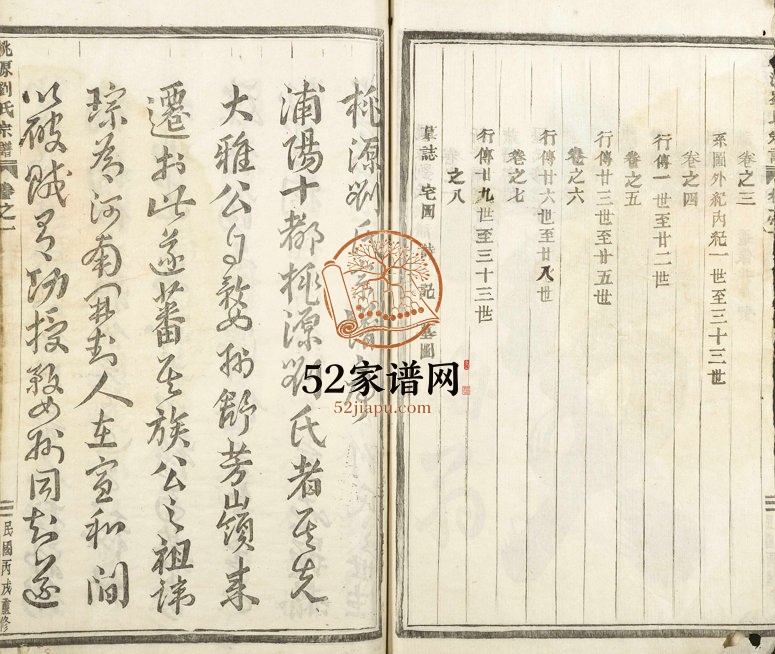 卷之三
系圖外紀內紀一世至三十三世
卷之四
行傳一世至廿二世
卷之五
行傳廿三世至廿五世
卷之六
行傳廿六世至廿八世
卷之七
行傳廿九世至三十三世
卷之八
墓誌 宅圖 記 圖
52家谱网
52jiapu.com
桃源劉氏
浦陽十都桃源劉氏者其先
大雅公自婺州舒芳嶺來
遷於此遂蕃其族公之祖諱
琮者河南開封人在宣和間
以破賊有功授婺州同知遂
桃源劉氏宗譜 卷之一
民國丙戌重修